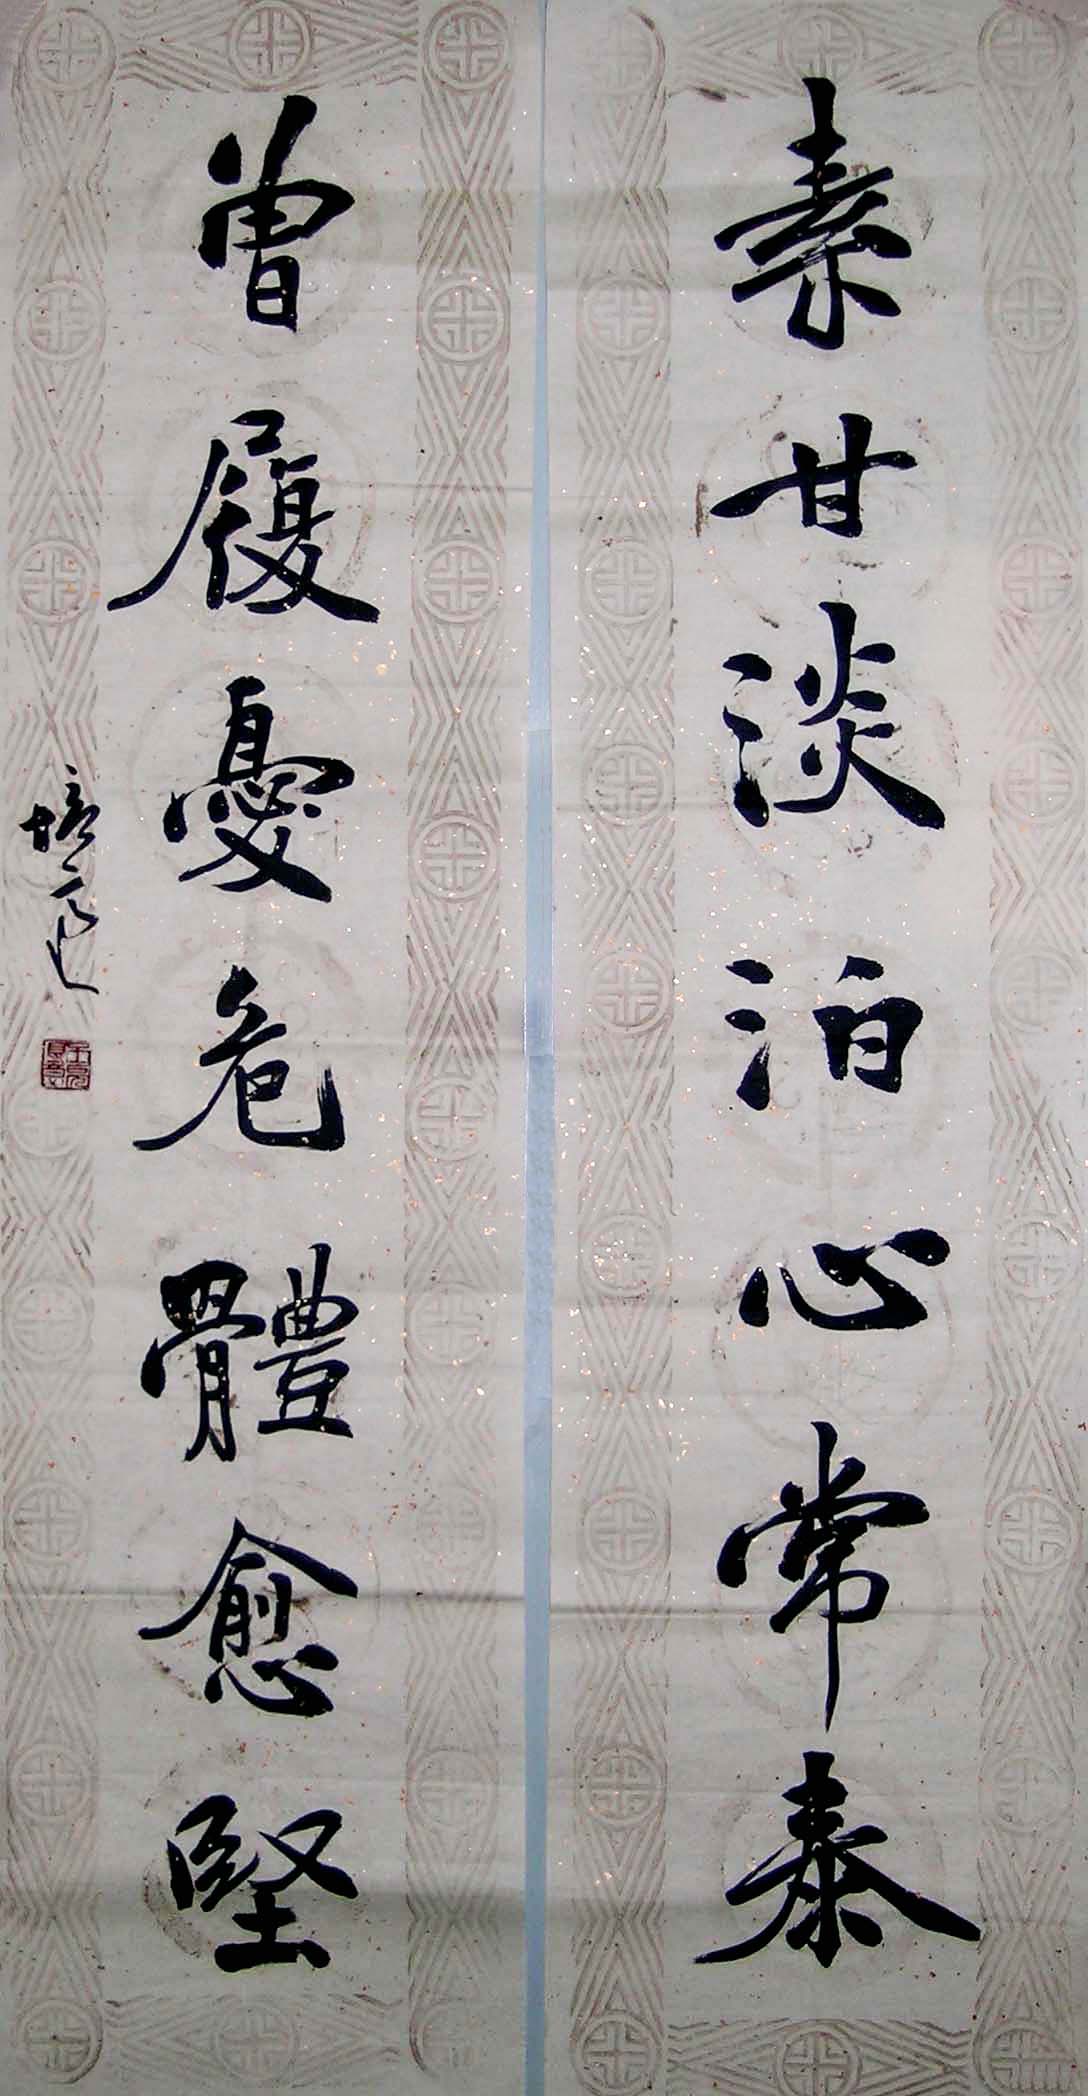 素甘淡泊心常泰
曾履憂危體愈堅